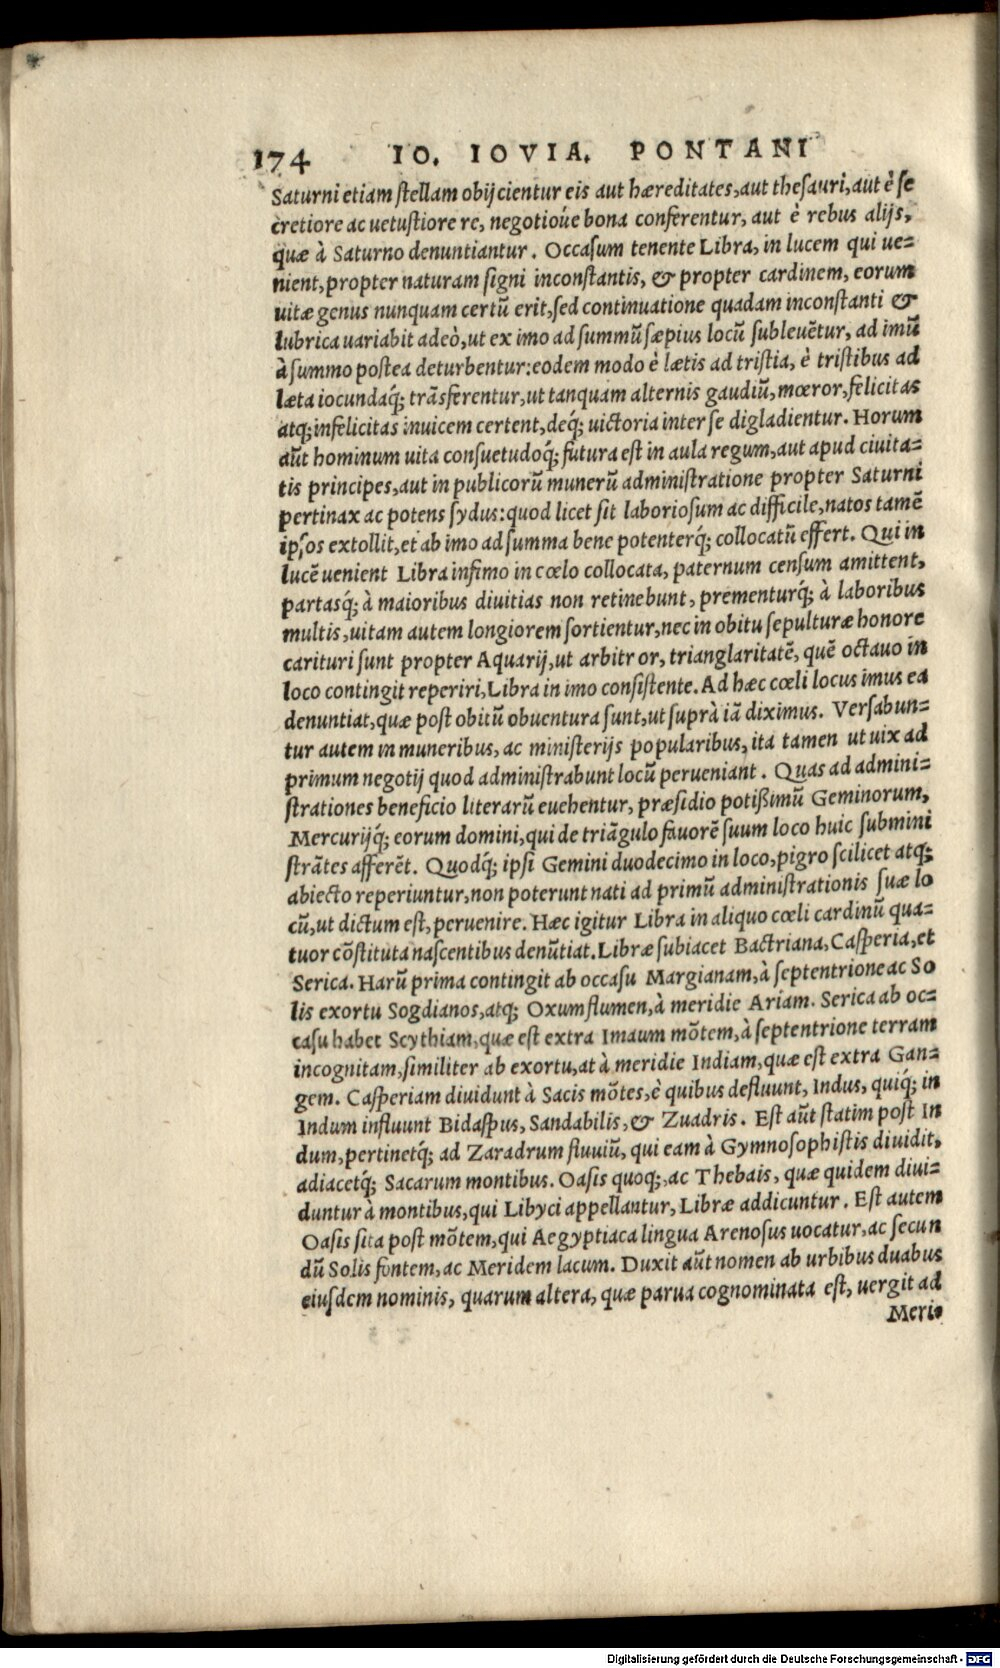 174 IO. IOVIA. PONTANI
Saturni etiam ſtellam obijcientur eis aut hæreditates, aut theſauri, aut è ſe
cretiore ac uetuſtiore re, negotioúe bona conferentur, aut è rebus alijs,
quæ à Saturno denuntiantur. Occaſum tenente Libra, in lucem qui ue=
nient, propter naturam ſigni inconſtantis, & propter cardinem, eorum
uitæ genus nunquam certũ erit, ſed continuatione quadam inconſtanti &
lubrica uariabit adeò, ut ex imo ad ſummũ ſæpius locũ ſubleuẽtur, ad imũ
à ſummo poſtea deturbentur: eodem modo è lætis ad triſtia, è triſtibus ad
læta iocundaq́;  trãsferentur, ut tanquam alternis gaudiũ, mœror, felicitas
atq; infelicitas inuicem certent, deq́; uictoria inter ſe digladientur. Horum
aũt hominum uita conſuetudoq́; futura eſt in aula regum, aut apud ciuita=
tis principes, aut in publicorũ munerũ adminiſtratione propter Saturni
pertinax ac potens ſydus: quod licet ſit laborioſum ac difficile, natos tamẽ
ipſos extollit, et ab imo ad ſumma bene potenterq́; collocatũ effert. Qui in
lucẽ uenient Libra infimo in cœlo collocata, paternum cenſum amittent,
partasq́; à maioribus diuitias non retinebunt, prementurq́; à laboribus
multis, uitam autem longiorem ſortientur, nec in obitu ſepulturæ honore
carituri ſunt propter Aquarij, ut arbitror, trianglaritatẽ, quẽ octauo in
loco contingit reperiri, Libra in imo conſiſtente. Ad hæc cœli locus imus ea
denuntiat, quæ poſt obitũ obuentura ſunt, ut ſuprà iã diximus. Verſabun=
tur autem in muneribus, ac miniſterijs popularibus, ita tamen ut uix ad
primum negotij quod adminiſtrabunt locũ perueniant. Quas ad admini=
ſtrationes beneficio literarũ euehentur, præſidio potißimũ Geminorum,
Mercurijq́; eorum domini, qui de triãgulo fauorẽ ſuum loco huic ſubmini
ſtrãtes afferẽt. Quodq́; ipſi Gemini duodecimo in loco, pigro ſcilicet atq;
abiecto reperiuntur, non poterunt nati ad primũ adminiſtrationis ſuæ lo
cũ, ut dictum eſt, peruenire. Hæc igitur Libra in aliquo cœli cardinũ qua=
tuor cõſtituta naſcentibus denũtiat. Libræ ſubiacet Bactriana, Caſperia, et
Serica. Harũ prima contingit ab occaſu Margianam, à ſeptentrione ac So
lis exortu Sogdianos, atq; Oxum flumen, à meridie Ariam. Serica ab oc=
caſu habet Scythiam, quæ eſt extra Imaum mõtem, à ſeptentrione terram
incognitam, ſimiliter ab exortu, at à meridie Indiam, quæ eſt extra Gan=
gem. Caſperiam diuidunt à Sacis mõtes, è quibus defluunt, Indus, quiq́; in
Indum influunt Bidaſpus, Sandabilis, & Zuadris. Eſt aũt ſtatim poſt In
dum, pertinetq́; ad Zaradrum fluuiũ, qui eam à Gymnoſophiſtis diuidit,
adiacetq́; Sacarum montibus. Oaſis quoq;, ac Thebais, quæ quidem diui=
duntur à montibus, qui Libyci appellantur, Libræ addicuntur. Eſt autem
Oaſis ſita poſt mõtem, qui Aegyptiaca lingua Arenoſus uocatur, ac ſecun
dũ Solis fontem, ac Meridem lacum. Duxit aũt nomen ab urbibus duabus
eiuſdem nominis, quarum altera, quæ parua cognominata eſt, uergit ad
Meri=
Digitalisierung gefördert durch die Deutsche Forschungsgemeinschaft - DFG